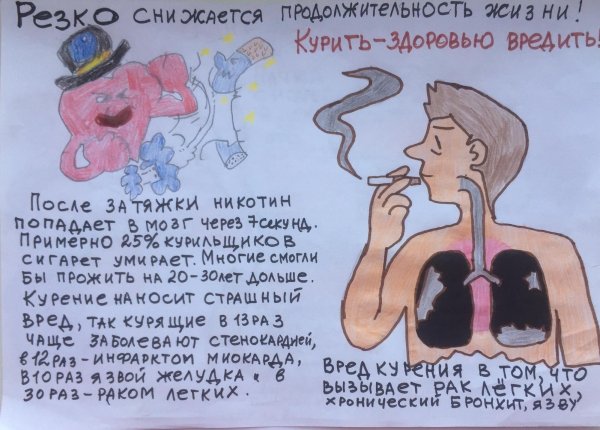 Резко снижается продолжительность жизни!
Курить-здоровью вредить!
После затяжки никотин
попадает в мозг через 7 секунд.
Примерно 25% курильщиков
сигарет умирает. Многие смогли
бы прожить на 20-30 лет дольше.
Курение наносит страшный
вред, так курящие в 13 раз
чаще заболевают стенокардией,
в 12 раз - инфарктом миокарда,
в 10 раз язвой желудка и в
30 раз - раком легких.
Вред курения в том, что
вызывает рак лёгких,
хронический бронхит, язву